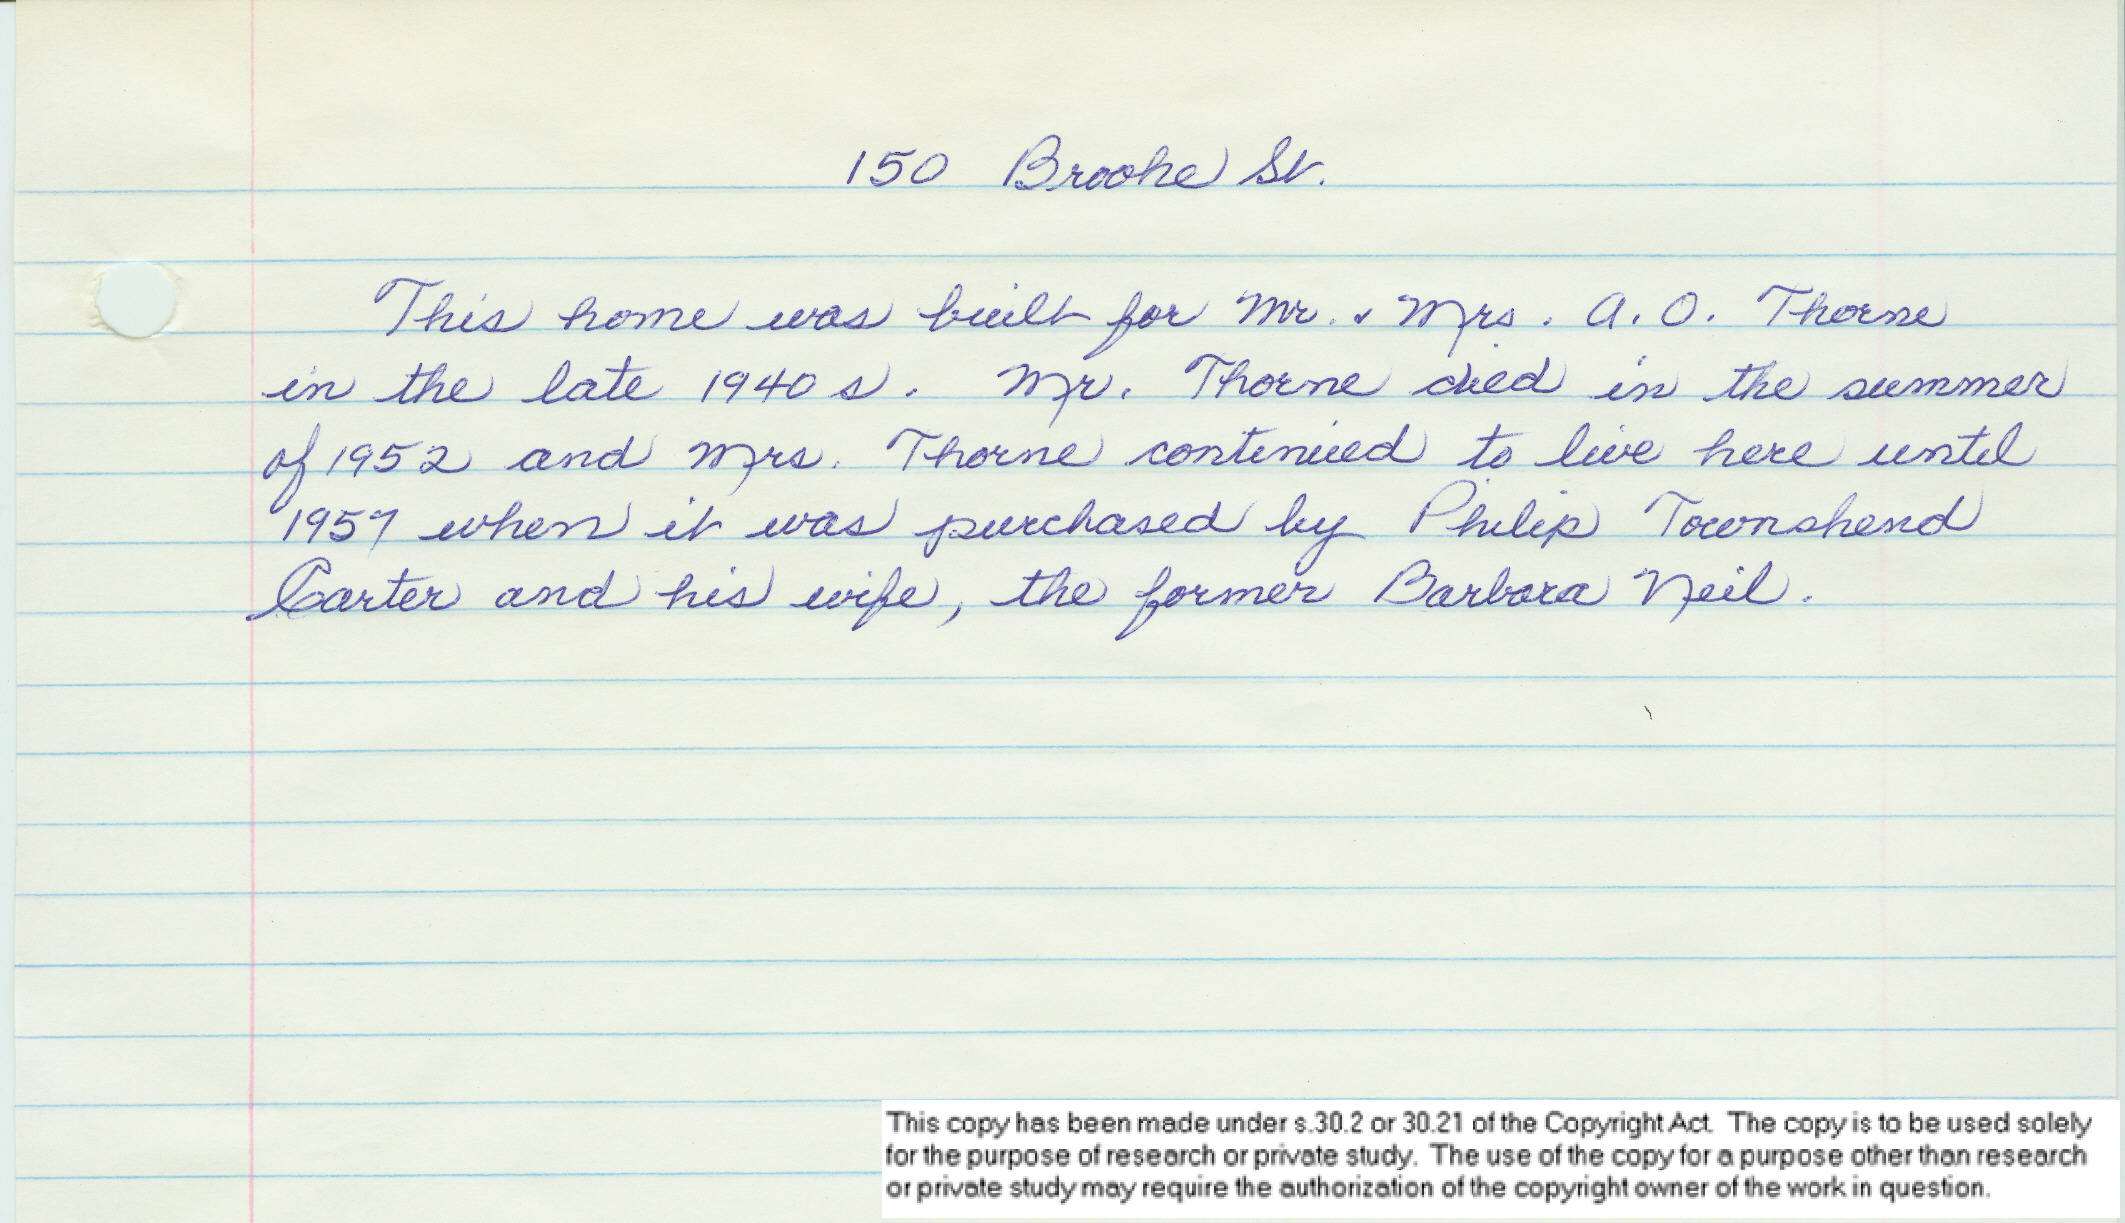 150 Brooke St.
This home was built for Mr. & Mrs. A. O. Thorne
in the late 1940s. Mr. Thorne died in the summer
of 1952 and Mrs. Thorne continued to live here until
1957 when it was purchased by Philip Townshend
Carter and his wife, the former Barbara Neil.
This copy has been made under s.30.2 or 30.21 of the Copyright Act. The copy is to be used solely
for the purpose of research or private study. The use of the copy for a purpose other than research
or private study may require the authorization of the copyright owner of the work in question.